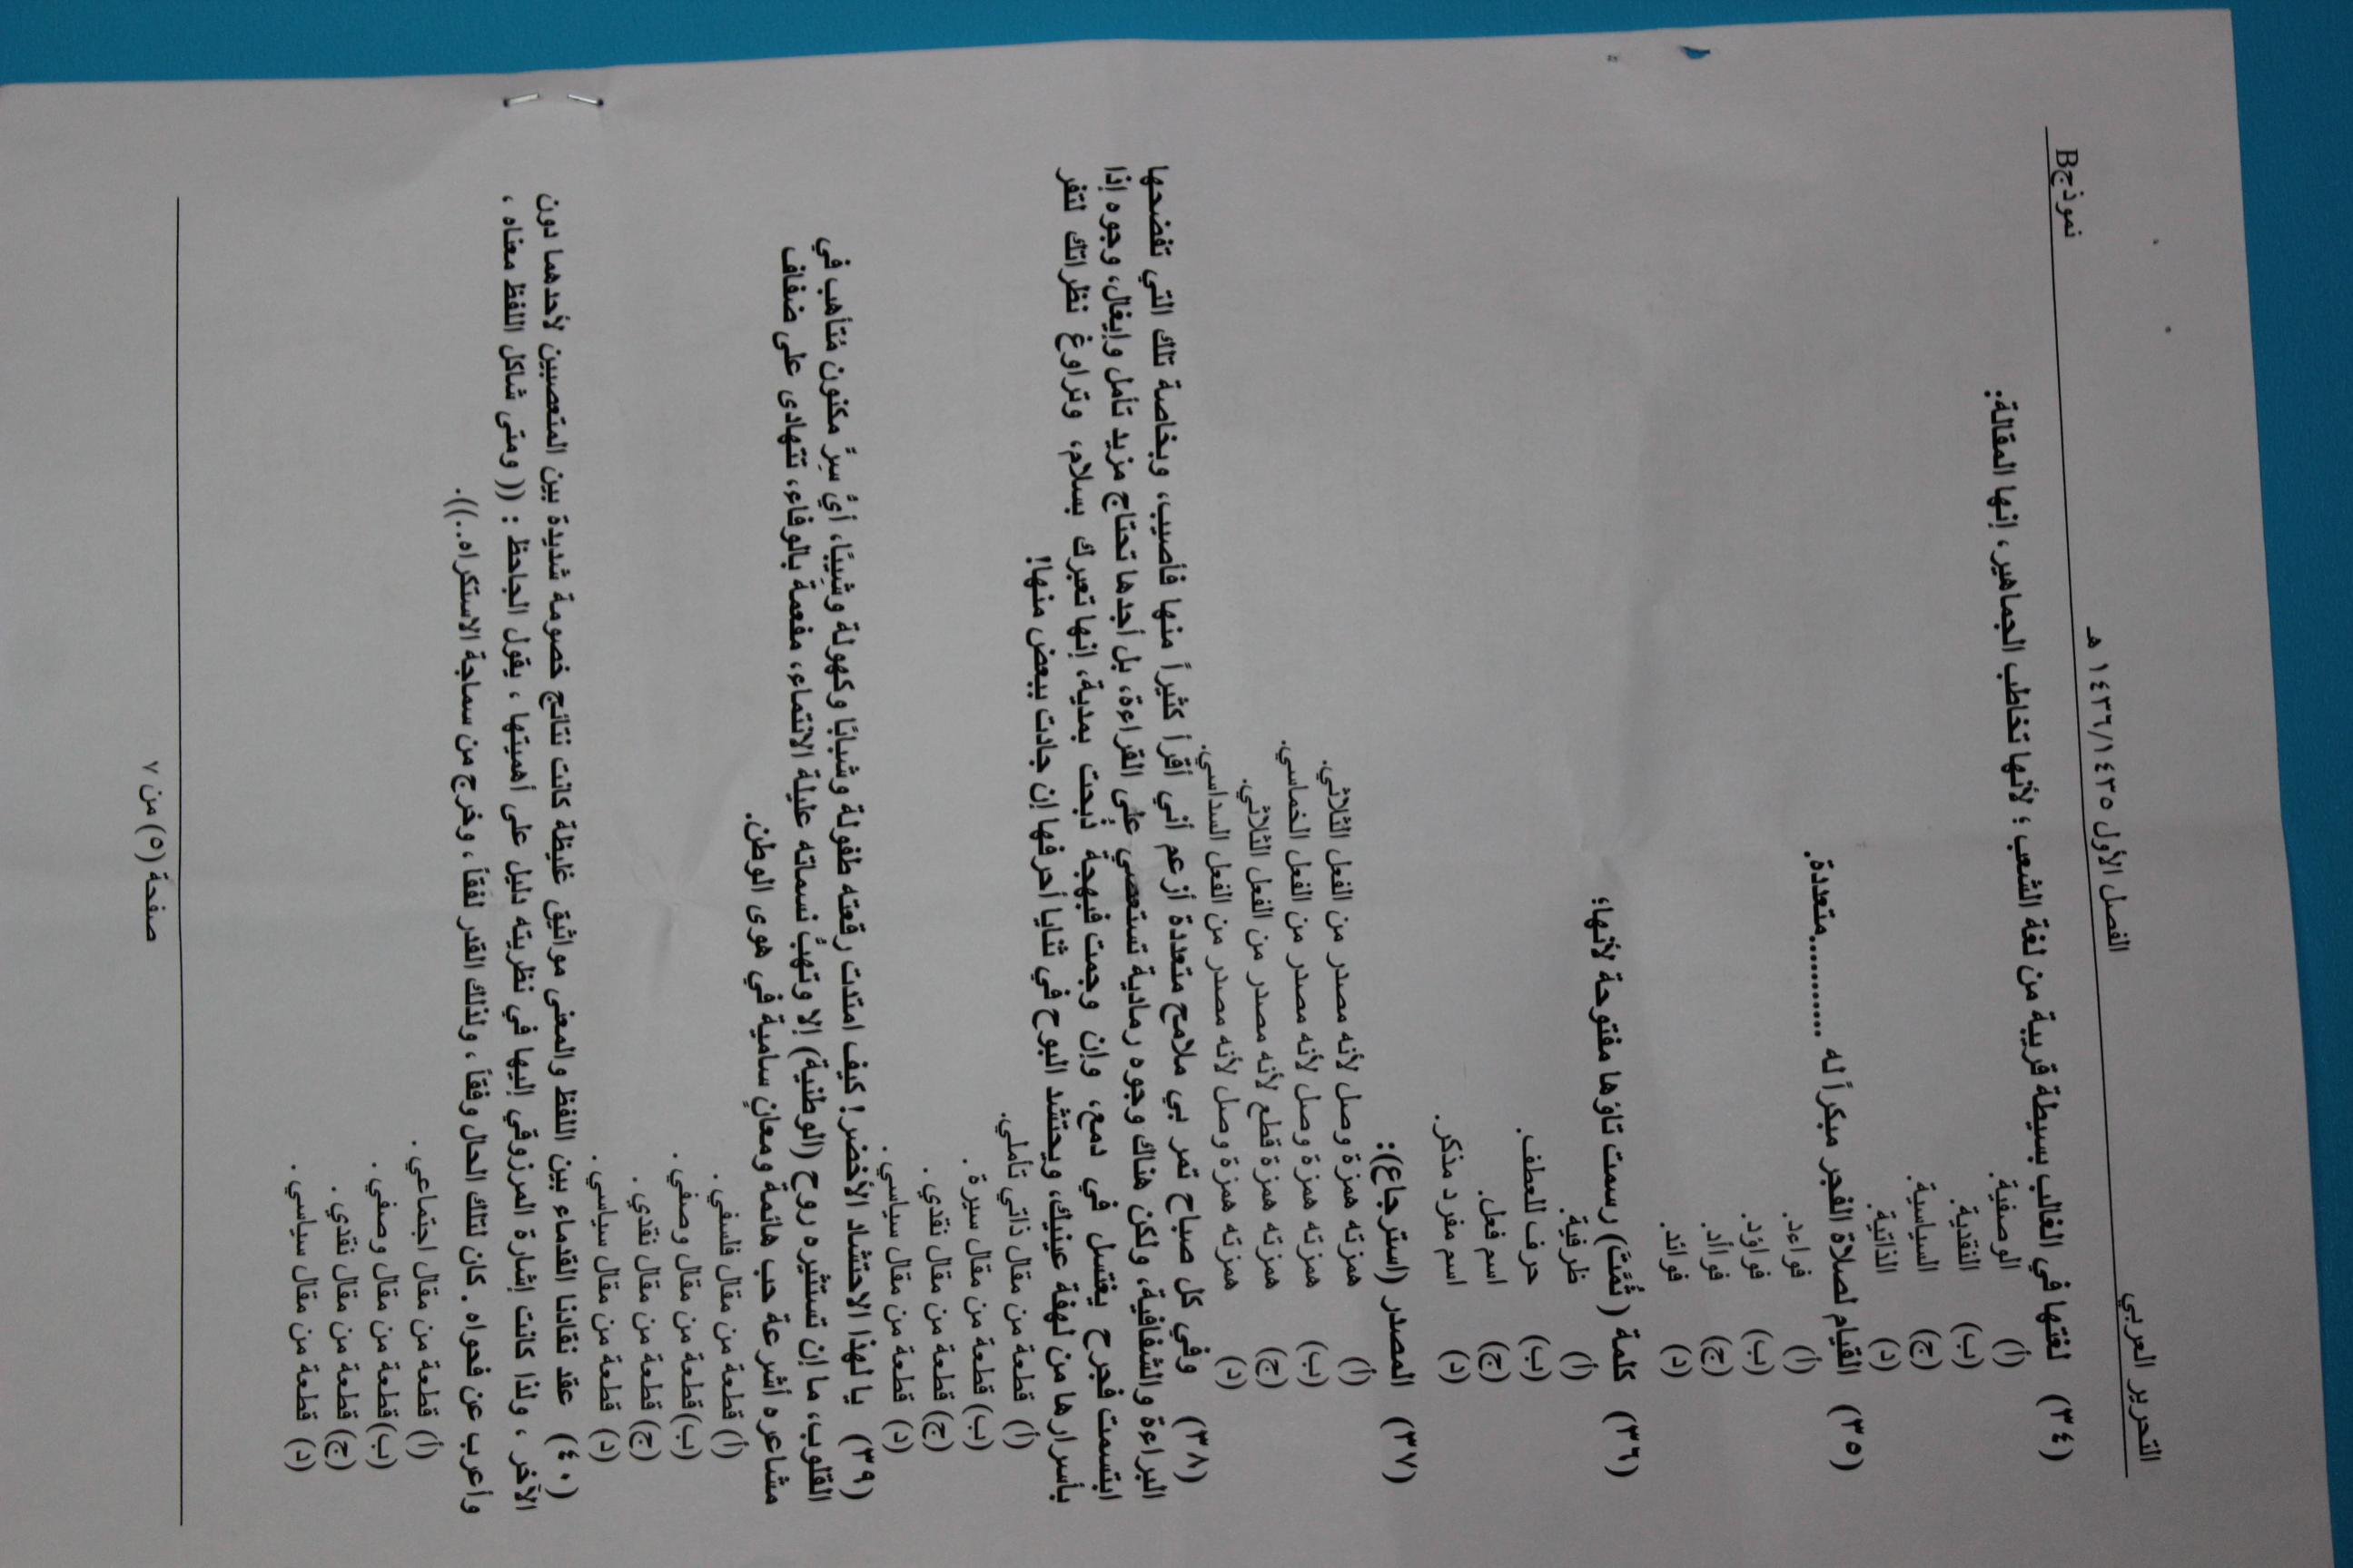 التحرير العربي الفصل الأول ١٤٣٦/١٤٣٥ هـ نموذجB
(٣٤) لغتها في الغالب بسيطة قريبة من لغة الشعب ؛ لأنها تخاطب الجماهير، إنها المقالة:
(أ) الوصفية.
(ب) النقدية.
(ج) السياسية.
(د) الذاتية.
(٣٥) القيام لصلاة الفجر مبكراً له ...........متعددة.
(أ) فواءد.
(ب) فواؤد.
(ج) فواأد.
(د) فوائد.
(٣٦) كلمة (ثُمَّتَ) رسمت تاؤها مفتوحة لأنها:
(أ) ظرفية.
(ب) حرف للعطف.
(ج) اسم فعل.
(د) اسم مفرد مذكر.
(٣٧) المصدر (استرجاع):
(أ) همزته همزة وصل لأنه مصدر من الفعل الثلاثي.
(ب) همزته همزة وصل لأنه مصدر من الفعل الخماسي.
(ج) همزته همزة قطع لأنه مصدر من الفعل الثلاثي.
(د) همزته همزة وصل لأنه مصدر من الفعل السداسي.
(٣٨) وفي كل صباح تمر بي ملامح متعددة أزعم أني أقرأ كثيراً منها فأصيب، وبخاصة تلك التي تفضحها
البراءة والشفافية، ولكن هناك وجوه رمادية تستعصي على القراءة، بل أجدها تحتاج مزيد تأمل وإيغال، وجوه إذا
ابتسمت فجرح يغتسل في دمع، وإن وجمت فبهجة ذُبحت بمدية، إنها تعبرك بسلام، وتراوغ نظراتك لتفر
بأسرارها من لهفة عينيك، ويحتشد البوح في ثنايا أحرفها إن جادت ببعض منها!
(أ) قطعة من مقال ذاتي تأملي.
(ب) قطعة من مقال سيرة .
(ج) قطعة من مقال نقدي .
(د) قطعة من مقال سياسي .
(٣٩) يا لهذا الاحتشاد الأخضر! كيف امتدت رقعته طفولة وشبابًا وكهولة وشِيبًا، أيُّ سِرٍّ مكنون مُتأهب في
القلوب، ما إن تستثيره روح (الوطنية) إلا وتهبُّ نسماته عليلة الانتماء، مفعمة بالوفاء، تتهادى على ضفاف
مشاعره أشرعة حب هائمة ومعانٍ سامية في هوى الوطن.
(أ) قطعة من مقال فلسفي .
(ب) قطعة من مقال وصفي .
(ج) قطعة من مقال نقدي .
(د) قطعة من مقال سياسي .
(٤٠) عقد نقادنا القدماء بين اللفظ والمعنى مواثيق غليظة كانت نتائج خصومة شديدة بين المتعصبين لأحدهما دون
الآخر ، ولذا كانت إشارة المرزوقي إليها في نظريته دليل على أهميتها ، يقول الجاحظ : (( ومتى شاكل اللفظ معناه ،
وأعرب عن فحواه . كان لتلك الحال وفقاً ، ولذلك القدر لفقاً ، وخرج من سماجة الاستكراه..)).
(أ) قطعة من مقال اجتماعي .
(ب) قطعة من مقال وصفي .
(ج) قطعة من مقال نقدي .
(د) قطعة من مقال سياسي .
صفحة (٥) من ٧